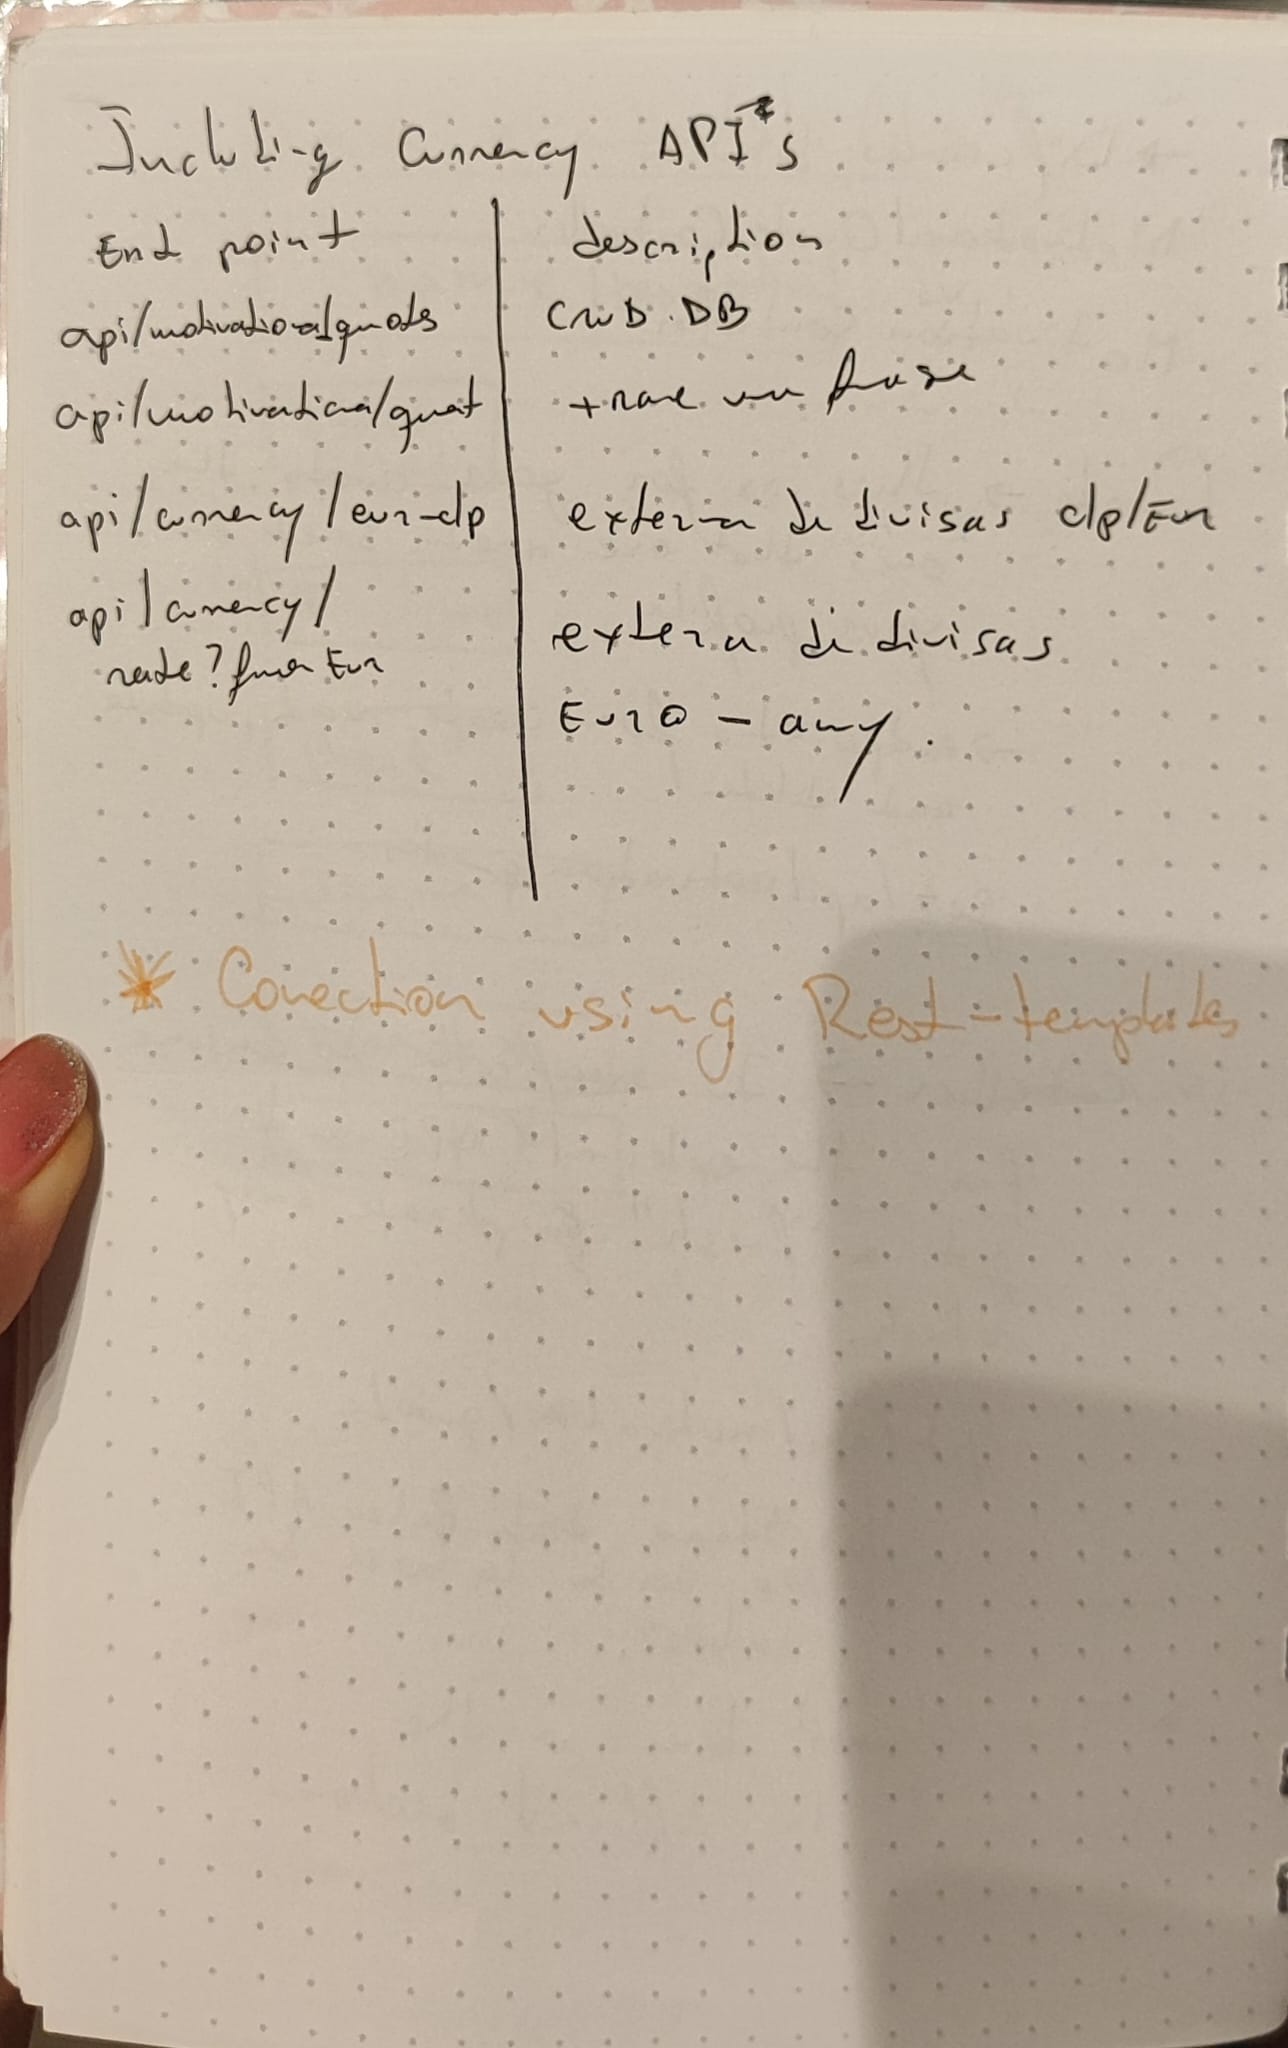 Including Currency API's
End point | description
api/motivational/quots | CRUD DB
api/motivationa/quot | trae una frase
api/currency/eur-clp | externa de divisas clp/Eur
api/currency/ | externa de divisas
rate? Eur | Euro - any.
* Conection using Rest-templates